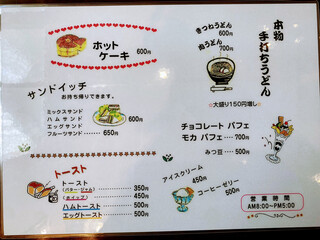 ホット
ケーキ 600円
きつねうどん
600円
肉うどん
700円
本物
手打ちうどん
☆大盛り150円増し☆
サンドイッチ
お持ち帰りできます。
ミックスサンド
ハムサンド 600円
エッグサンド
フルーツサンド……650円
チョコレート パフェ
モカ パフェ……700円
みつ豆……500円
トースト
トースト
(バター・ジャム) 350円
(ホイップ) 450円
ハムトースト 500円
エッグトースト 500円
アイスクリーム
450円
コーヒーゼリー
500円
営業時間
AM8:00~PM5:00